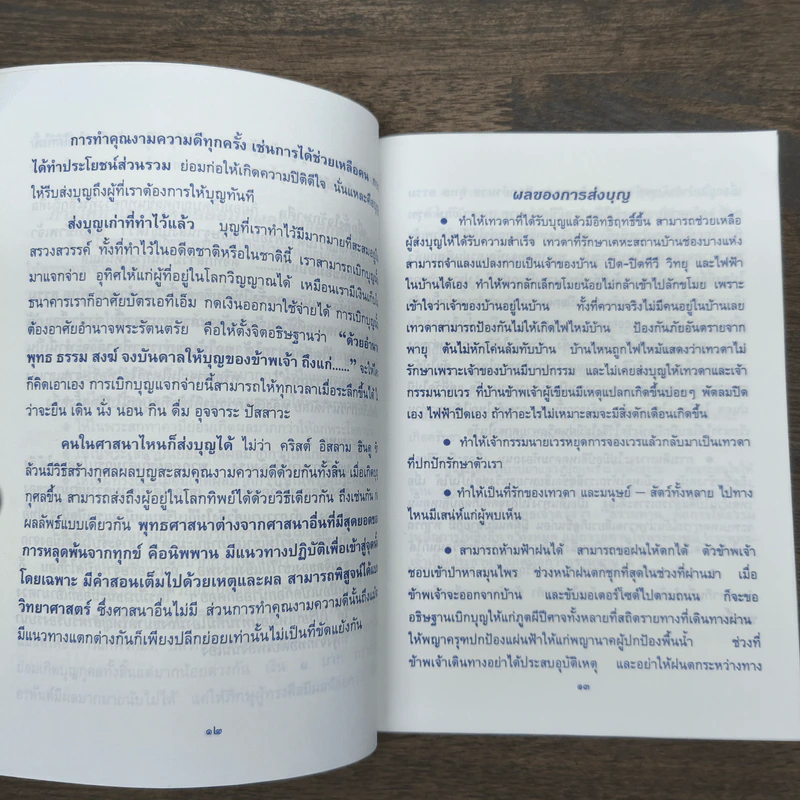 การทำคุณงามความดีทุกครั้ง เช่นการได้ช่วยเหลือคน
ได้ทำประโยชน์ส่วนรวม ย่อมก่อให้เกิดความปิติดีใจ นั่นแหละคือ
ให้รีบส่งบุญถึงผู้ที่เราต้องการให้บุญทันที
ส่งบุญเก่าที่ทำไว้แล้ว บุญที่เราทำไว้มีมากมายที่สะสมอยู่
สรวงสวรรค์ ทั้งที่ทำไว้ในอดีตชาติหรือในชาตินี้ เราสามารถเบิกบุญ
มาแจกจ่าย อุทิศให้แก่ผู้ที่อยู่ในโลกวิญญาณได้ เหมือนเรามีเงิน
ธนาคารเราก็อาศัยบัตรเอทีเอ็ม กดเงินออกมาใช้จ่ายได้ การเบิกบุญ
ต้องอาศัยอำนาจพระรัตนตรัย คือให้ตั้งจิตอธิษฐานว่า “ด้วยอำนาจ
พุทธ ธรรม สงฆ์ จงบันดาลให้บุญของข้าพเจ้า ถึงแก่......” จะให้
ก็คิดเอาเอง การเบิกบุญแจกจ่ายนี้สามารถให้ทุกเวลาเมื่อระลึกขึ้นได้
ว่าจะยืน เดิน นั่ง นอน กิน ดื่ม อุจจาระ ปัสสาวะ
คนในศาสนาไหนก็ส่งบุญได้ ไม่ว่า คริสต์ อิสลาม ฮินดู
ล้วนมีวิธีสร้างกุศลผลบุญสะสมคุณงามความดีด้วยกันทั้งสิ้น เมื่อเกิด
กุศลขึ้น สามารถส่งถึงผู้อยู่ในโลกทิพย์ได้ด้วยวิธีเดียวกัน ถึงเช่นกัน
ผลลัพธ์แบบเดียวกัน พุทธศาสนาต่างจากศาสนาอื่นที่มีสุดยอด
การหลุดพ้นจากทุกข์ คือนิพพาน มีแนวทางปฏิบัติเพื่อเข้าสู่
โดยเฉพาะ มีคำสอนเต็มไปด้วยเหตุและผล สามารถพิสูจน์ได้
วิทยาศาสตร์ ซึ่งศาสนาอื่นไม่มี ส่วนการทำคุณงามความดีนั้นถึง
มีแนวทางแตกต่างกันก็เพียงปลีกย่อยเท่านั้นไม่เป็นที่ขัดแย้งกัน
๑๒
ผลของการส่งบุญ
● ทำให้เทวดาที่ได้รับบุญแล้วมีอิทธิฤทธิ์ขึ้น สามารถช่วยเหลือ
ผู้ส่งบุญให้ได้รับความสำเร็จ เทวดาที่รักษาเคหะสถานบ้านช่องบางแห่ง
สามารถจำแลงแปลงกายเป็นเจ้าของบ้าน เปิด-ปิดทีวี วิทยุ และไฟฟ้า
ในบ้านได้เอง ทำให้พวกลักเล็กขโมยน้อยไม่กล้าเข้าไปลักขโมย เพราะ
เข้าใจว่าเจ้าของบ้านอยู่ในบ้าน ทั้งที่ความจริงไม่มีคนอยู่ในบ้านเลย
เทวดาสามารถป้องกันไม่ให้เกิดไฟไหม้บ้าน ป้องกันภัยอันตรายจาก
พายุ ต้นไม้หักโค่นล้มทับบ้าน บ้านไหนถูกไฟไหม้แสดงว่าเทวดาไม่
รักษาเพราะเจ้าของบ้านมีบาปกรรม และไม่เคยส่งบุญให้เทวดาและเจ้า
กรรมนายเวร ที่บ้านข้าพเจ้าผู้เขียนมีเหตุแปลกเกิดขึ้นบ่อยๆ พัดลมปิด
เอง ไฟฟ้าปิดเอง ถ้าทำอะไรไม่เหมาะสมจะมีสิ่งตักเตือนเกิดขึ้น
● ทำให้เจ้ากรรมนายเวรหยุดการจองเวรแล้วกลับมาเป็นเทวดา
ที่ปกปักรักษาตัวเรา
● ทำให้เป็นที่รักของเทวดา และมนุษย์ – สัตว์ทั้งหลาย ไปทาง
ไหนมีเสน่ห์แก่ผู้พบเห็น
● สามารถห้ามฟ้าฝนได้ สามารถขอฝนให้ตกได้ ตัวข้าพเจ้า
ชอบเข้าป่าหาสมุนไพร ช่วงหน้าฝนตกชุกที่สุดในช่วงที่ผ่านมา เมื่อ
ข้าพเจ้าจะออกจากบ้าน และขับมอเตอร์ไซต์ไปตามถนน ก็จะขอ
อธิษฐานเบิกบุญให้แก่ภูตผีปีศาจทั้งหลายที่สถิตรายทางที่เดินทางผ่าน
ให้พญาครุฑปกป้องแผ่นฟ้าให้แก่พญานาคผู้ปกป้องพื้นน้ำ ช่วงที่
ข้าพเจ้าเดินทางอย่าได้ประสบอุบัติเหตุ และอย่าให้ฝนตกระหว่างทาง
๑๓